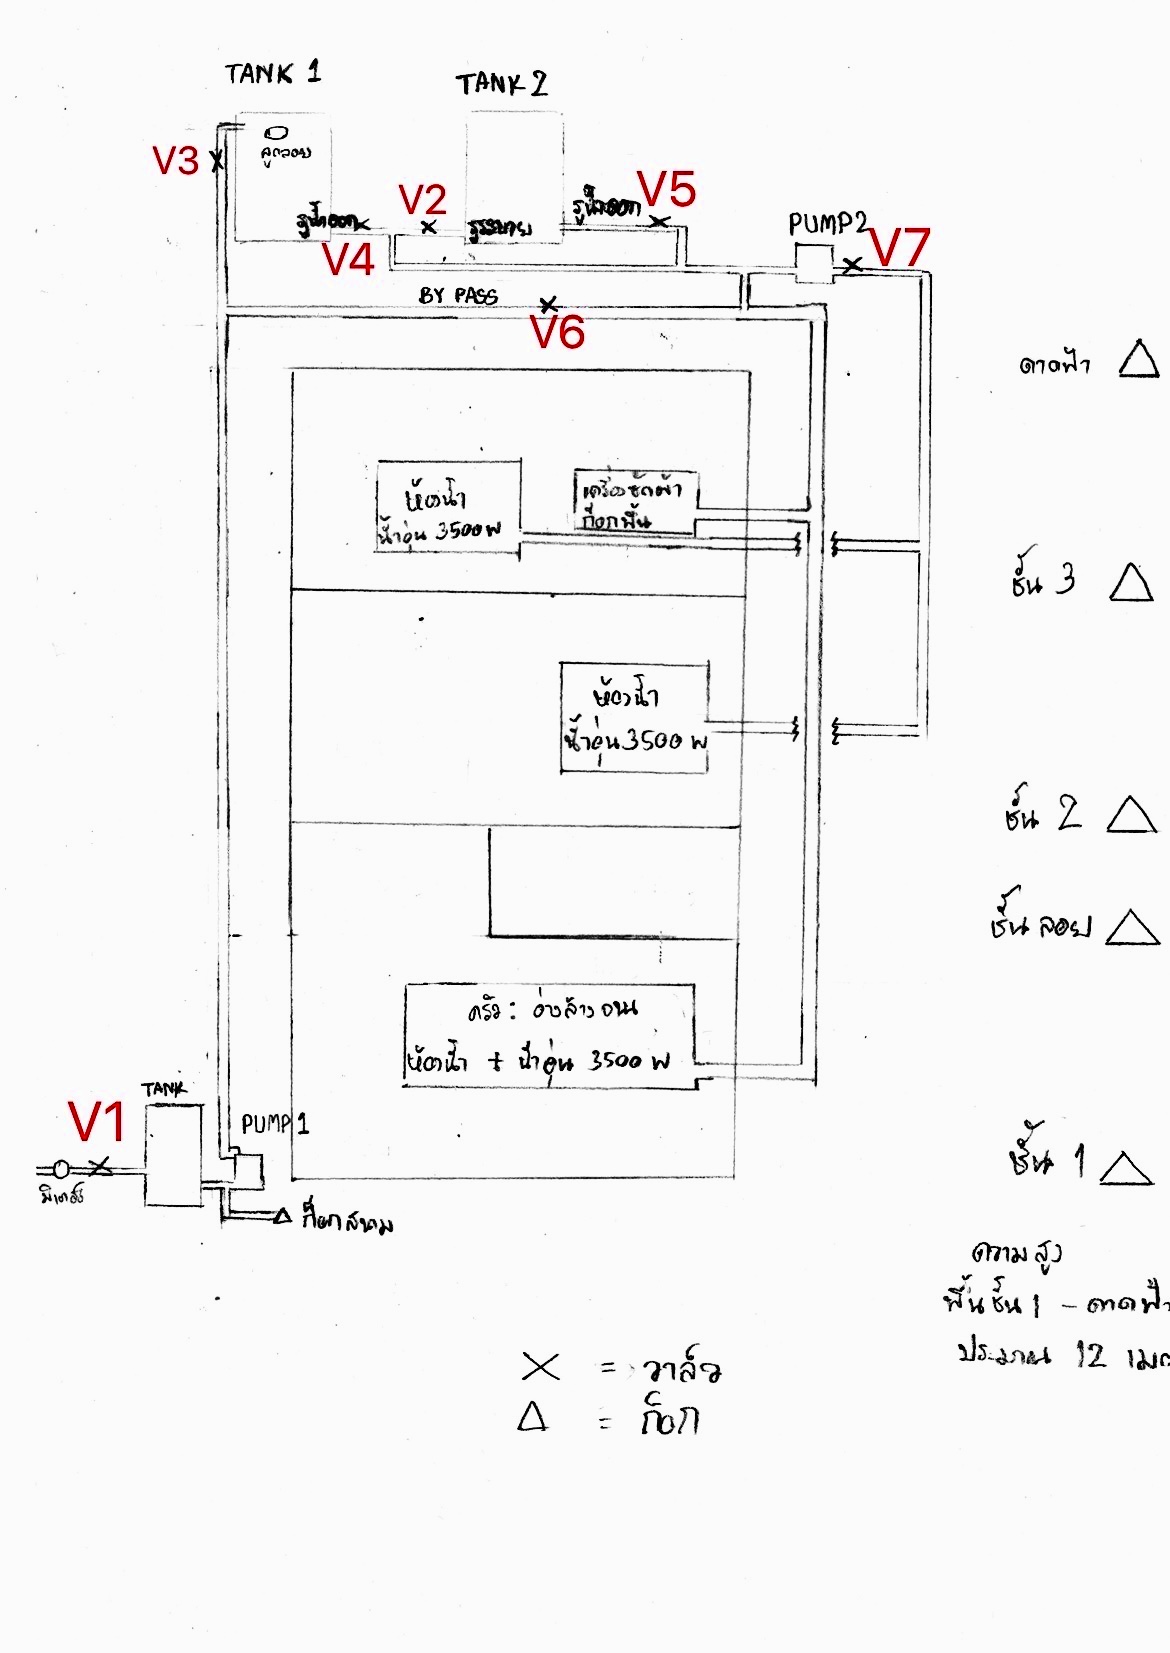 TANK 1
TANK 2
ลูกลอย
V3
V2
V5
รูน้ำออก
รูระบาย
รูน้ำออก
PUMP2
V7
V4
BY PASS
V6
ดาดฟ้า
ห้องน้ำ
น้ำอุ่น 3500 W
เครื่องซักผ้า
ก๊อกพื้น
ชั้น 3
ห้องน้ำ
น้ำอุ่น 3500 W
ชั้น 2
ชั้นลอย
ครัว : อ่างล้างจาน
ห้องน้ำ + น้ำอุ่น 3500 W
TANK
V1
PUMP 1
มิเตอร์
ก๊อกสนาม
ชั้น 1
ความสูง
พื้นชั้น 1 - ดาดฟ้า
ประมาณ 12 เมต
X = วาล์ว
△ = ก๊อก